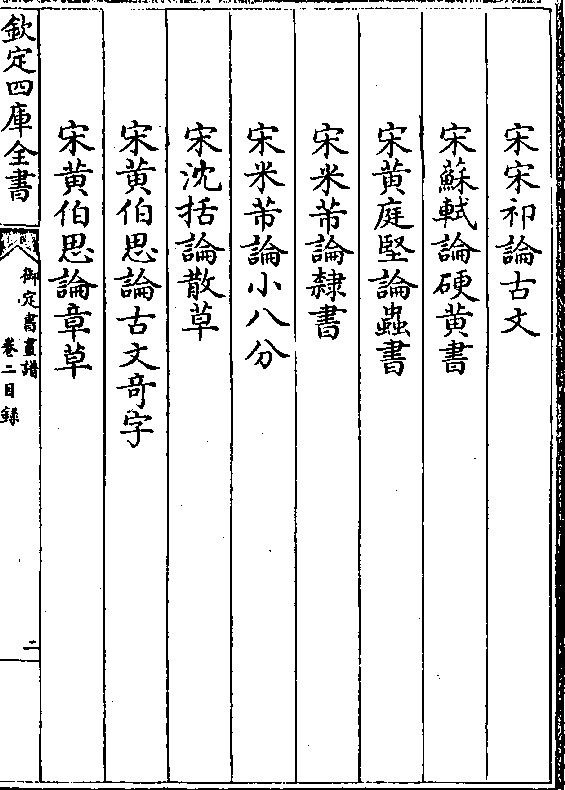 宋宋祁論古文
宋蘇軾論硬黄書
宋黄庭堅論蟲書
宋米芾論隸書
宋米芾論小八分
宋沈括論散草
宋黄伯思論古文竒字
宋黄伯思論章草
欽定四庫全書
御定書畫譜
卷二目錄
二